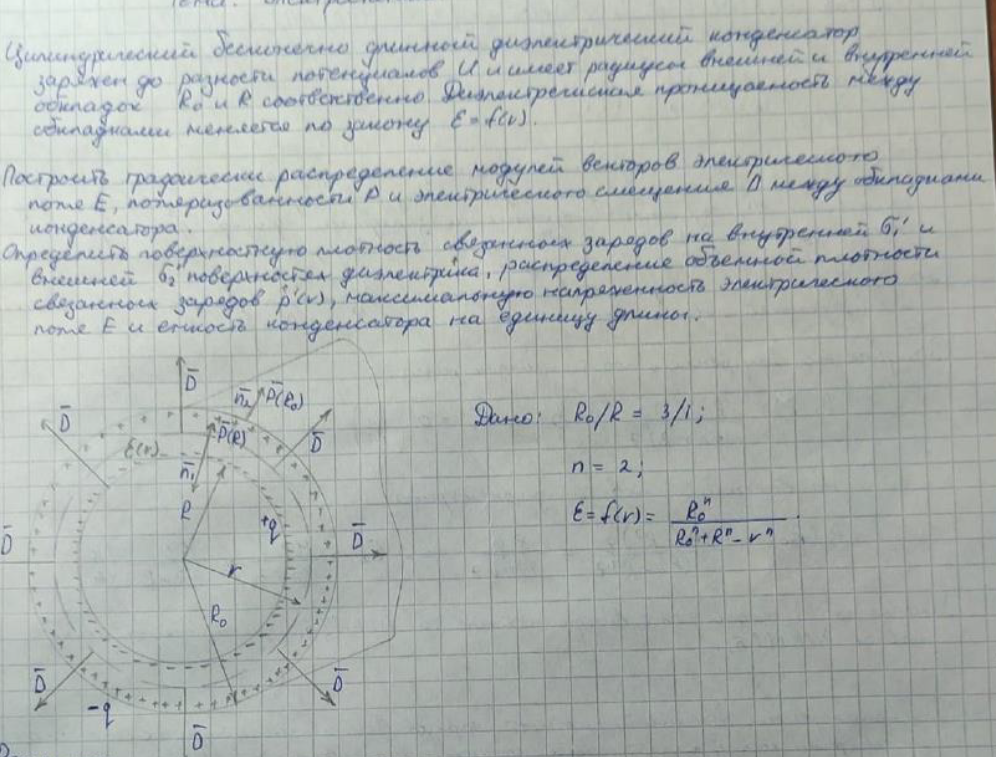 Тема:
Цилиндрический бесконечно длинный диэлектрический конденсатор
заряжен до разности потенциалов U и имеет радиусы внешней и внутренней
обкладок R₀ и R соответственно. Диэлектрическая проницаемость между
обкладками меняется по закону ε = f(r).
Построить графически распределение модулей векторов электрического
поля E, поляризованности P и электрического смещения D между обкладками
конденсатора.
Определить поверхностную плотность связанных зарядов на внутренней σ₁' и
внешней σ₂' поверхностях диэлектрика, распределение объемной плотности
связанных зарядов ρ'(r), максимальную напряженность электрического
поля E и емкость конденсатора на единицу длины.
D̄
n̄₂ P̄(R₀)
D̄
P̄(R)
D̄
ε(r)
n̄₁
R
+q
D̄
D̄
r
R₀
D̄
D̄
-q
D̄
Дано: R₀/R = 3/1;
n = 2;
ε = f(r) = R₀ⁿ / (R₀ⁿ + Rⁿ - rⁿ).